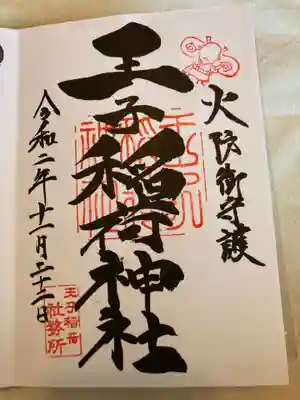 火防御守護
王子稲荷神社
令和二年十一月二十二日
王子稲荷
社務所